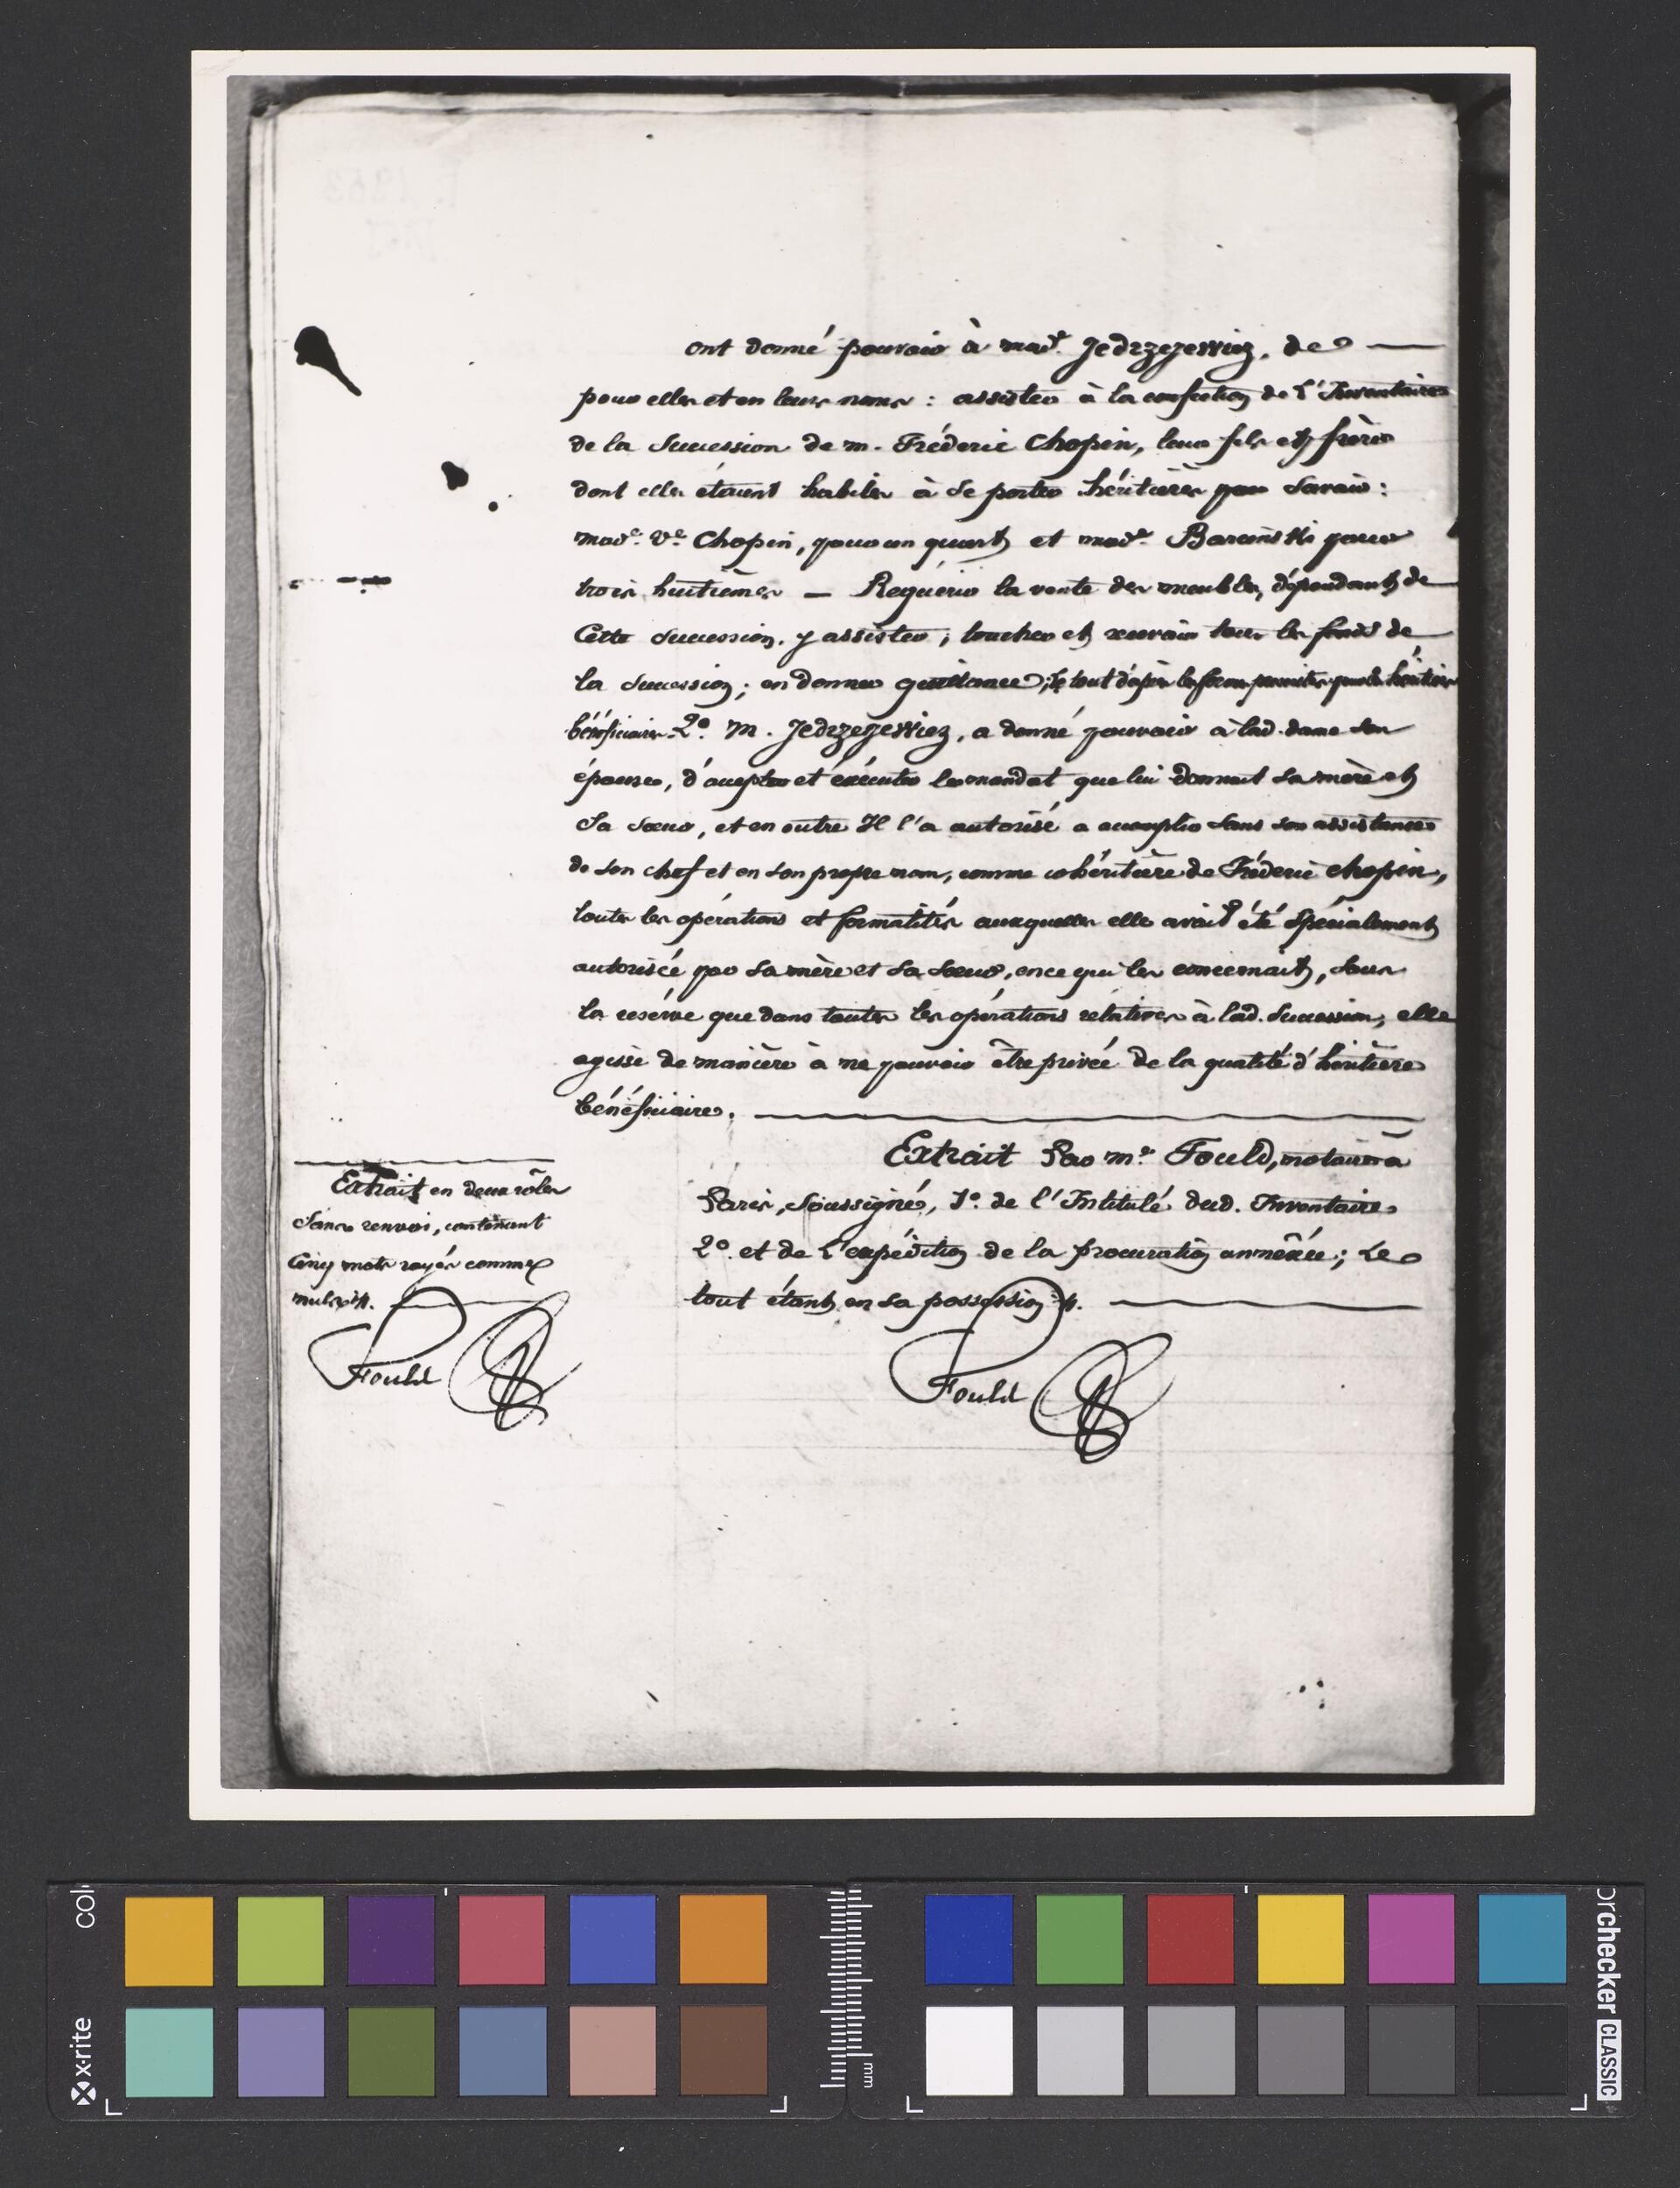 ont donné pouvoir à mad.e Jedrzejewicz, de
pour elles et en leurs noms : assister à la confection de l'Inventaire
de la Succession de m. Fréderic Chopin, leur fils et frère
dont elles étaient habiles à Se porter héritières pour Savoir :
mad.e v.e Chopin, pour un quart et mad.e Barcinski pour
trois huitièmes — Requérir la vente des meubles, dépendant de
Cette Succession, y assister ; toucher et recevoir tous les fonds de
la Succession ; en donner quittance ; le tout d'après les formes permises pour les héritiers
bénéficiaires. 2.o M. Jedrzejewicz, a donné pouvoir à lad. dame Son
épouse, d'accepter et éxécuter le mandat que lui donnait Sa mère et
Sa Sœur, et en outre Il l'a autorisé a accomplir Sans Son assistance
de Son chef et en Son propre nom, comme cohéritière de Fréderic Chopin,
toutes les opérations et formalités auxquelles elle avait été Spécialement
autorisée par Sa mère et Sa Sœur, en ce qui les concernait, Sous
la réserve que dans toutes les opérations relatives à lad. Succession, elle
agisse de manière à ne pouvoir être privée de la qualité d'héritière
bénéficiaire.
Extrait Par m.e Fould, notaire à
Paris, Soussigné, 1.o de l'Intitulé dud. Inventaire
2.o et de l'expédition de la procuration annéxée ; Le
tout étant en Sa possession
Fould
Extrait en deux rôles
Sans renvoi, contenant
Cinq mots rayés comme
nuls
Fould
x-rite
colorchecker CLASSIC
mm